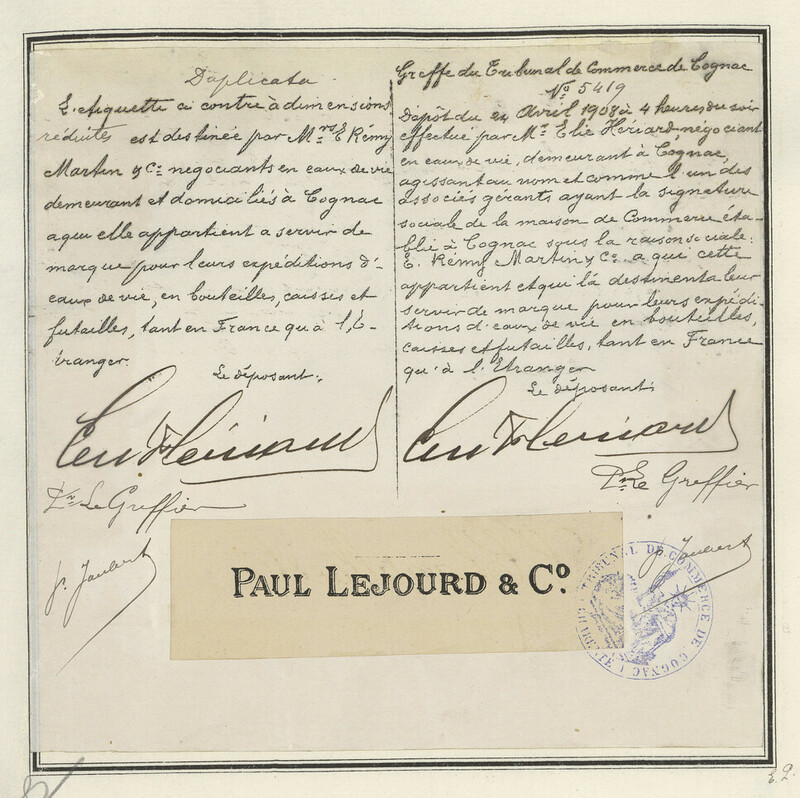 Duplicata
L'etiquette ci contre à dimensions
réduites est destinée par Mrs E. Rémy
Martin y Cie negociants en eaux de vie
demeurant et domiciliés à Cognac
a qui elle appartient a servir de
marque pour leurs expéditions d'-
eaux de vie, en bouteilles, caisses et
futailles, tant en France qu'à l'É-
tranger.
Le déposant:
Pr Le Greffier
J. Jaubert
Greffe du Tribunal de Commerce de Cognac
No 5419
Dépôt du 24 Avril 1908 à 4 heures du soir
effectué par Mr Elie Hériard, négociant
en eaux de vie, demeurant à Cognac,
agissant au nom et comme l'un des
associés gérants ayant la signature
sociale de la maison de Commerce éta-
blie à Cognac sous la raison sociale:
E. Rémy Martin y Co. a qui cette
appartient et qui la destinent a leur
servir de marque pour leurs expédi-
tions d'eaux de vie en bouteilles,
caisses et futailles, tant en France
qu'à l'Etranger
Le déposant:
Pr Le Greffier
J. Jaubert
PAUL LEJOURD & Co.
TRIBUNAL DE COMMERCE DE COGNAC
CHARENTE